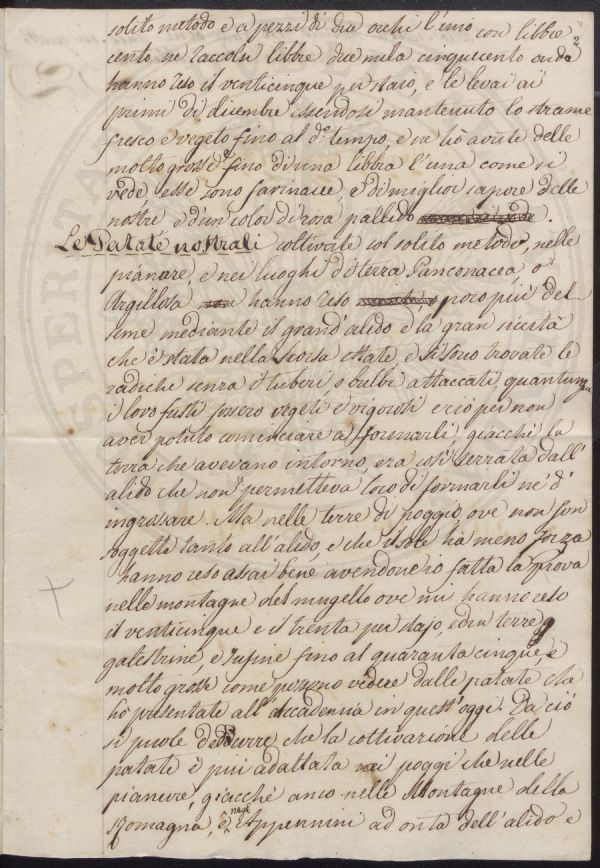 solito metodo e a pezzi di due occhi l'uno con libbre
cento ne raccolsi libbre due mila cinquecento onde
hanno reso il venticinque per stajo, e le levai ai
primi di dicembre essendosi mantenuto lo strame
fresco e vegeto fino al do. tempo, e ne hò avute delle
molto grosse fino di una libbra l'una come si
vede, esse sono farinacee, e di miglior sapore delle
nostre e d'un color di rosa pallido
Le Patate nostrali coltivate col solito metodo, nelle
pianure, e nei luoghi di terra Panconacea, o
Argillosa hanno reso poco più del
seme mediante il grand'alido e la gran siccità
che è stata nella scorsa estate, e si sono trovate le
radiche senza i tuberi, o bulbi attaccati, quantunque
i loro fusti fossero vegeti e vigorosi e ciò per non
aver potuto cominciare a formarli, giacchè la
terra che avevano intorno, era così serrata dall'
alido che non permetteva loro di formarli nè d'
ingrossare. Ma nelle terre di poggio ove non son
soggette tanto all'alido, e che il sole ha meno forza
hanno reso assai bene avendone io fatta la prova
nelle montagne del mugello ove mi hanno reso
il venticinque e il trenta per stajo, ed in terre
galestrine, e rufine fino al quaranta cinque, e
molto grosse come possono vedere dalle patate che
hò presentate all'accademia in quest'oggi. Da ciò
si puole dedurre che la coltivazione delle
patate è più adattata nei poggi che nelle
pianure, giacchè anco nelle Montagne della
Romagna, e negl'Appennini ad onta dell'alido e